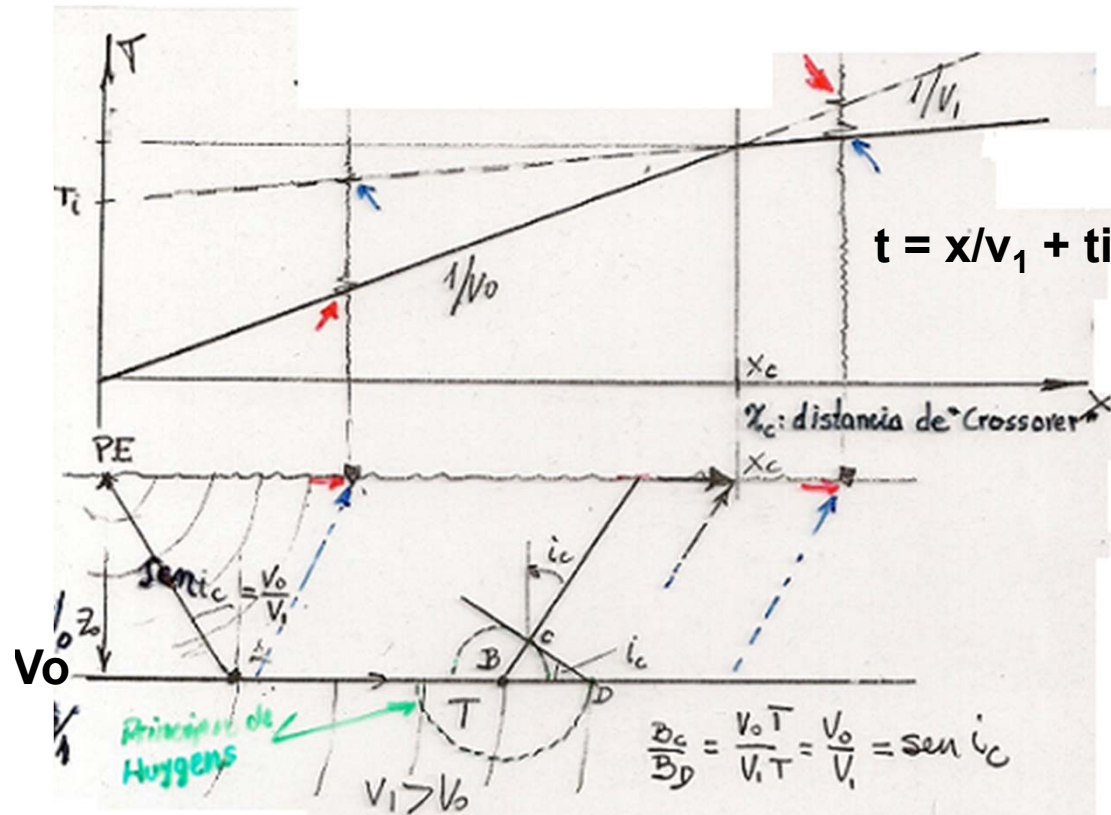 T
1/V₁
Ti
t = x/v₁ + ti
1/V₀
xc
X
xc: distancia de "Crossover"
PE
xc
ic
sen ic = V₀/V₁
Z₀
C
B
ic
Vo
D
T
Principio de
Huygens
BC/BD = V₀T/V₁T = V₀/V₁ = sen ic
V₁ > V₀